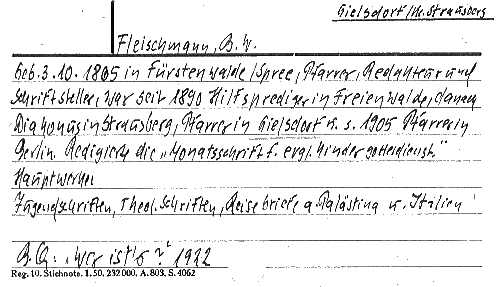 Gielsdorf/Kr. Strausberg
Fleischmann, B. W.
Geb. 3. 10. 1865 in Fürstenwalde/Spree, Pfarrer, Redakteur und
Schriftsteller, war seit 1890 Hilfsprediger in Freienwalde, danach
Diakonus in Strausberg, Pfarrer in Gielsdorf u. s. 1905 Pfarrer in
Berlin. Redigierte die „Monatsschrift f. evgl. Kindergottesdienst."
Hauptwerke:
Jugendschriften, Theol. Schriften, Reisebriefe a Palästina u. Italien
B. Q. „Wer ist's?" 1922
Reg. 10. Stichnote. 1.50. 232000. A. 803. S. 4062